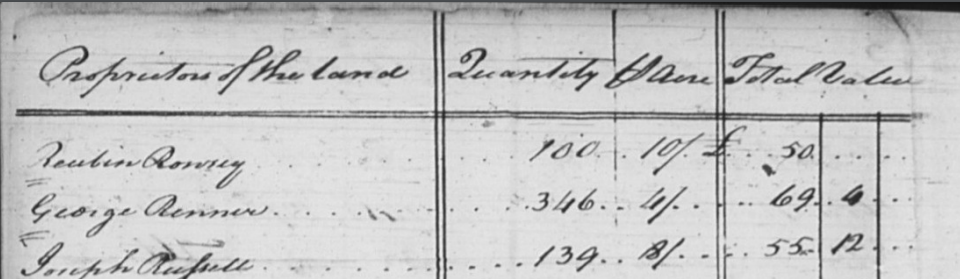 Proprietors of the Land Quantity ⅌ Acre Total Value
Reubin Rowsey 100 10/ £ 50
George Renner 346 4/ 69 4
Joseph Russell 139 8/ 55 12